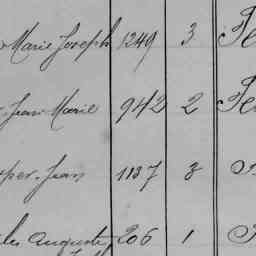 Marie Joseph 1249 3
Jean Marie 942 2
Jean 1137 8
Auguste 206 1